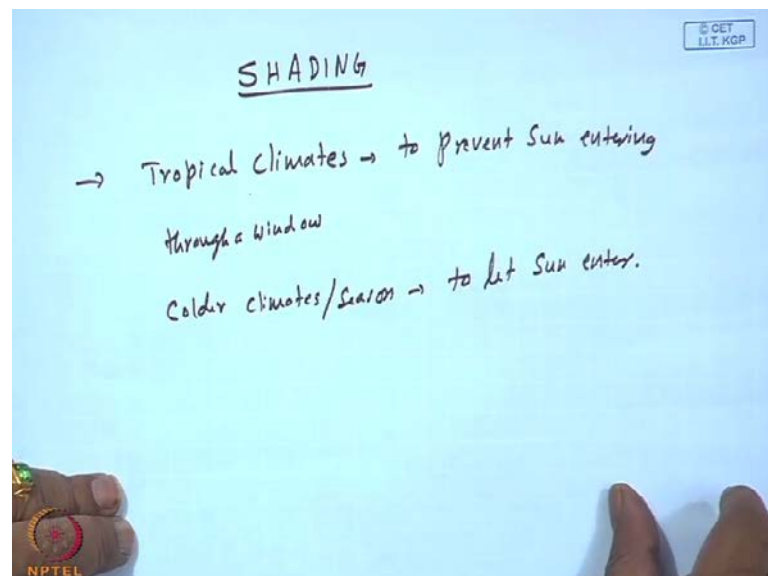 © CET
I.I.T. KGP
SHADING
→ Tropical climates → to prevent Sun entering
through a window
Colder climates/Season → to let Sun enter.
NPTEL